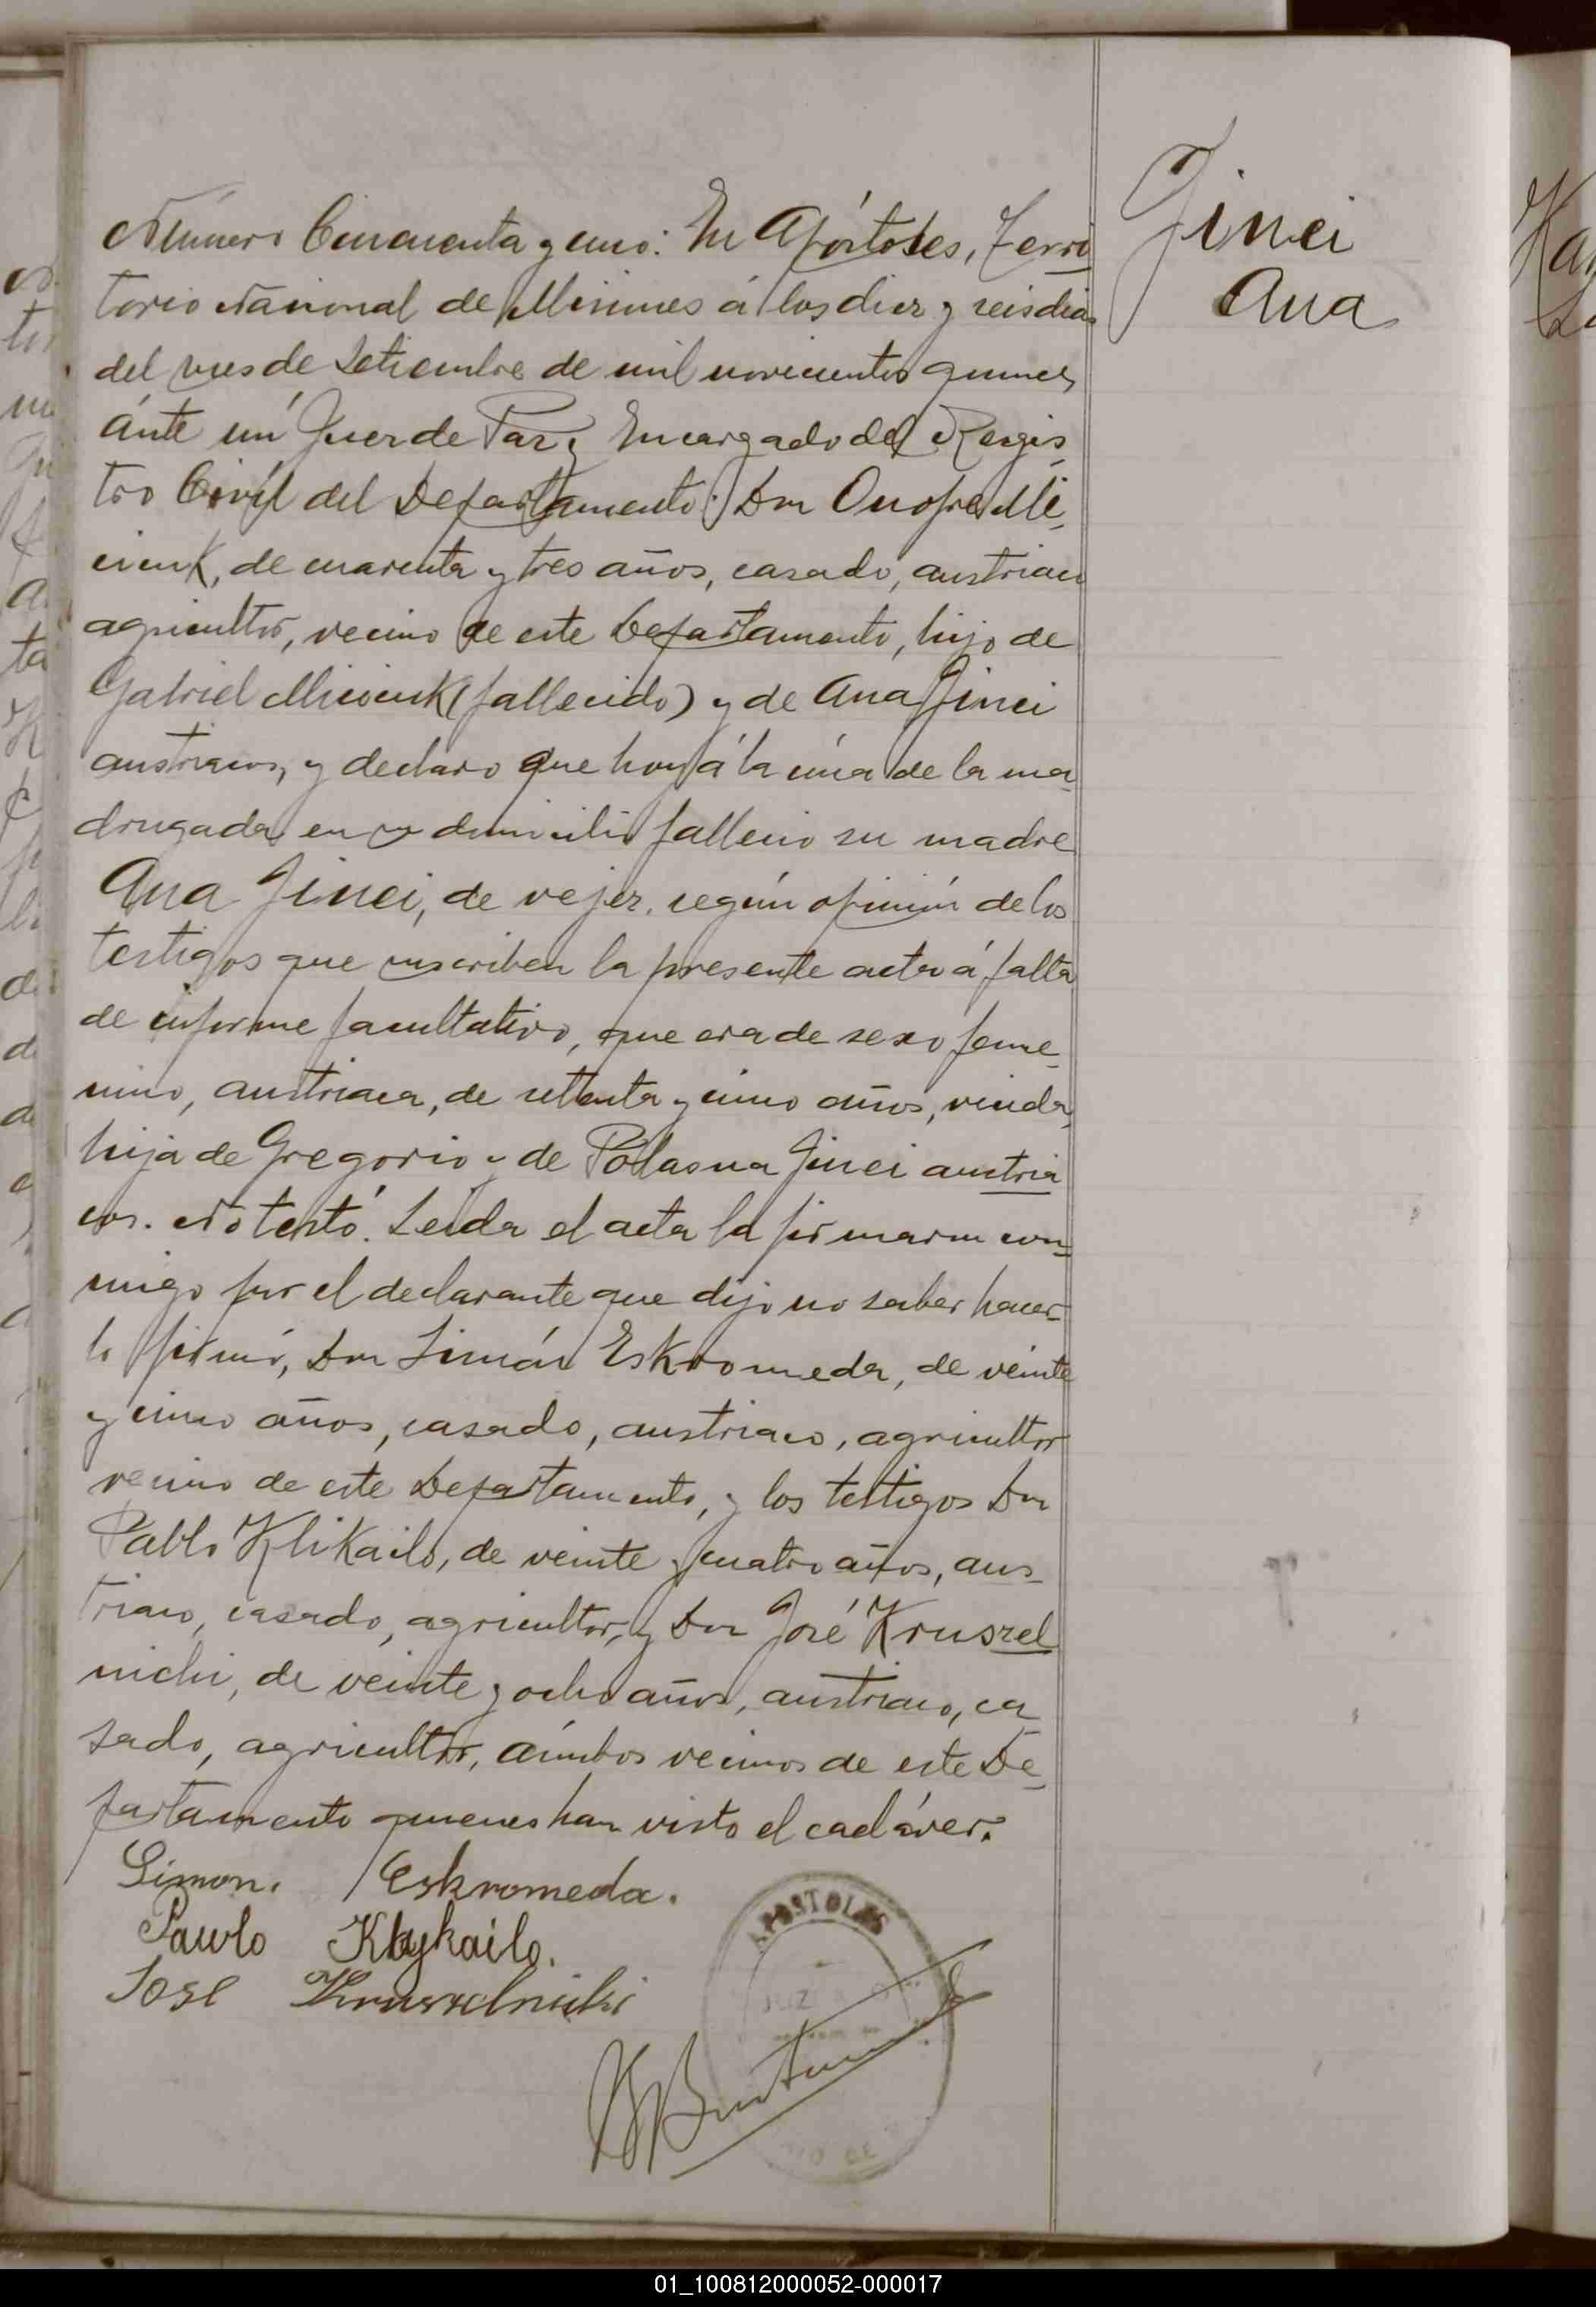 Jinei
Ana
Número Cincuenta y uno: En Apóstoles, Terri
torio Nacional de Misiones á los diez y seis dias
del mes de Setiembre de mil novecientos quince,
ánte mí Juez de Paz y Encargado del Regis
tro Civíl del Departamento: Don Onofre Mi
ciuk, de cuarenta y tres años, casado, austriaco
agricultor, vecino de este Departamento, hijo de
Gabriel Miciuk (fallecido) y de Ana Jinei
austriacos, y declaro que hoy á la úna de la ma
drugada en su domicilio fallecio su madre
Ana Jinei, de vejez, según opinión de los
testigos que suscriben la presente acta á falta
de informe facultativo, que era de sexo feme
nino, austriaca, de setenta y cinco años, viuda,
hija de Gregorio y de Polasna Jinei austria
cos. No testó. Leída el acta la firmaron con
migo por el declarante que dijo no saber hacer
lo firmó, Don Simón Eskromeda, de veinte
y cinco años, casado, austriaco, agricultor
vecino de este Departamento, y los testigos Don
Pablo Klikailo, de veinte y cuatro años, aus
triaco, casado, agricultor, y Don José Kruszel
nichi, de veinte y ocho años, austriaco, ca
sado, agricultor, ámbos vecinos de este De
partamento quienes han visto el cadáver.
Simon. Eskromeda.
Pawlo Klykailo.
Jose Kruszelnicki
APOSTOLES
01_100812000052-000017